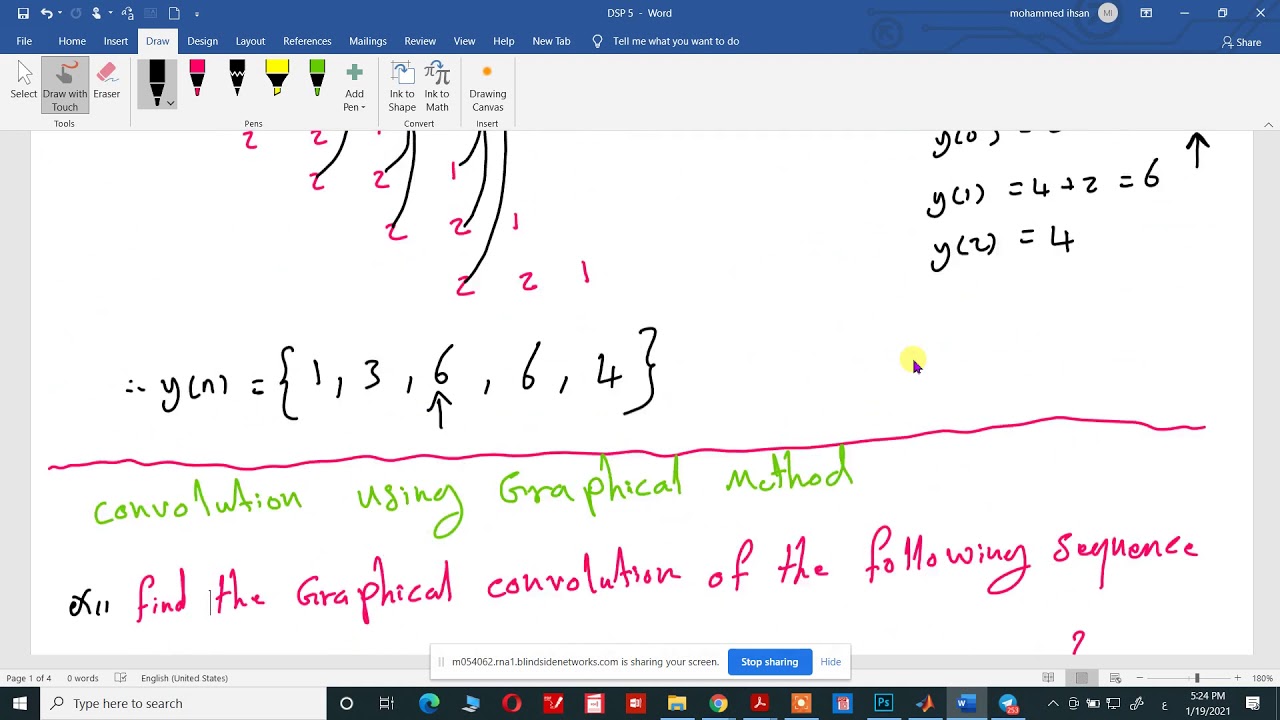 DSP 5 - Word
mohammed ihsan
MI
File Home Insert Draw Design Layout References Mailings Review View New Tab Tell me what you want to do
Share
Select
Draw with Touch
Eraser
Add Pen
Ink to Shape
Ink to Math
Drawing Canvas
Tools
Pens
Convert
Insert
2 2
2 2 1
2 2 1
2 2 1
y(0) =
y(1) = 4 + 2 = 6
y(2) = 4
∴ y(n) = { 1, 3, 6, 6, 4 }
↑
convolution using Graphical Method
find the Graphical convolution of the following sequence
?
m054062.rna1.blindsidenetworks.com is sharing your screen.
Stop sharing
Hide
Page 1 of 4 0 words English (United States)
180%
Type here to search
5:24 PM
1/19/2021